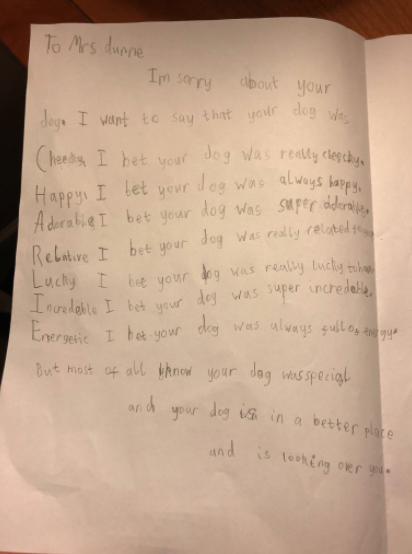 To Mrs dunne
Im sorry about your
dog. I want to say that your dog was
Cheeky, I bet your dog was really cheechy.
Happy, I bet your dog was always happy.
Adorable, I bet your dog was super adorable.
Relative I bet your dog was really related to
Lucky I bet your dog was really lucky to
Incredeble I bet your dog was super incredeble.
Energetic I bet your dog was always full of energy.
But most of all know your dog was special
and your dog is in a better place
and is looking over you.